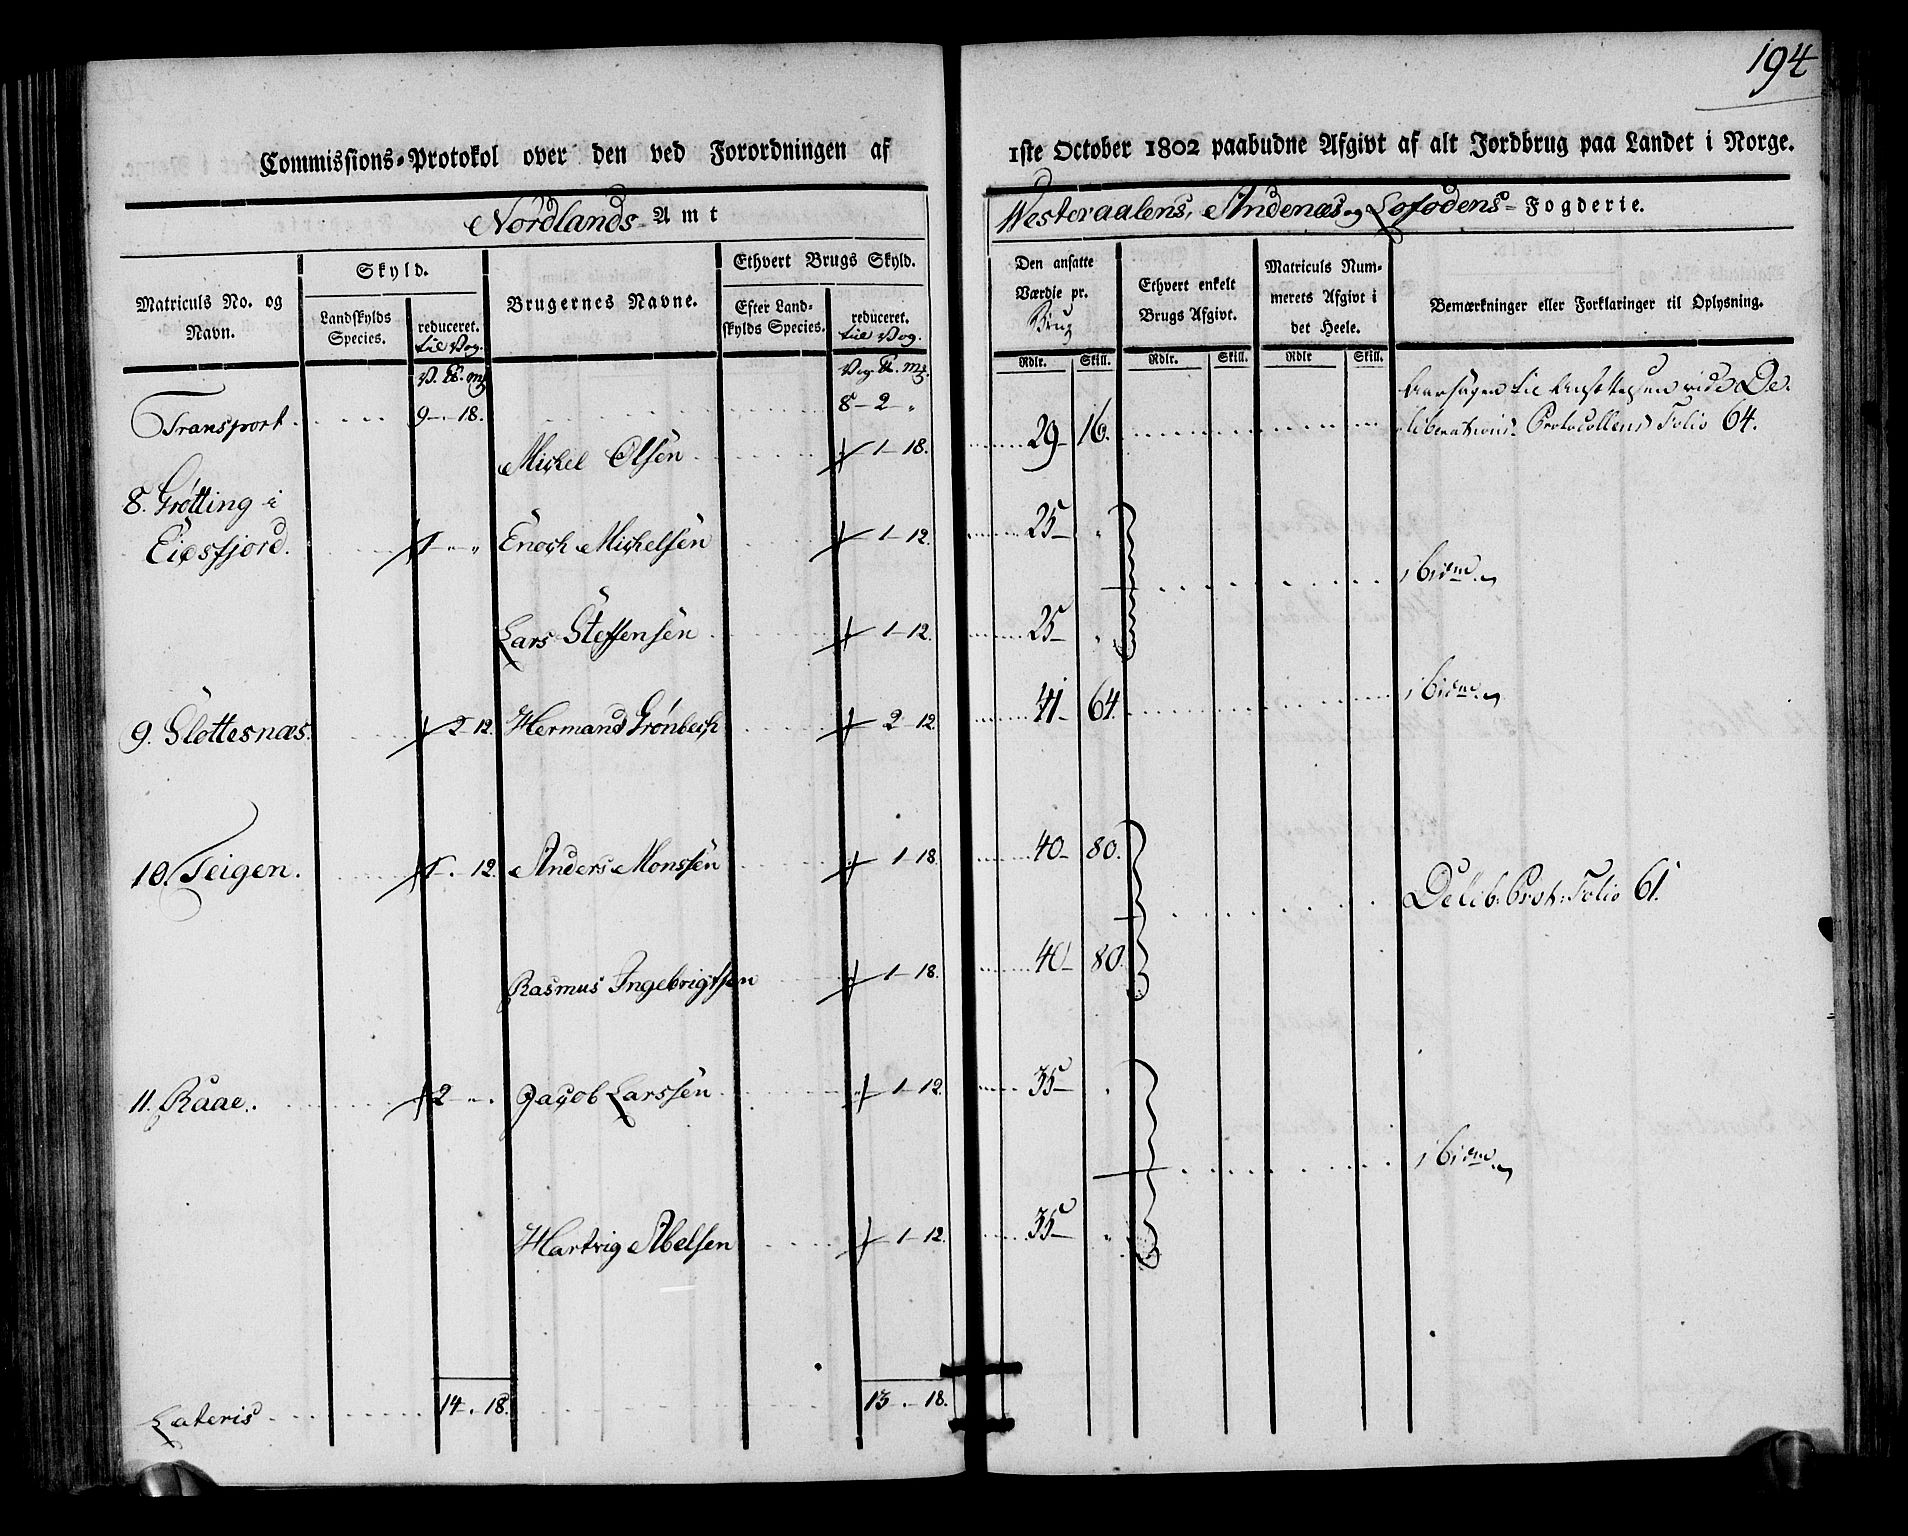 194
Commissions-Protokol over den ved Forordningen af 1ste October 1802 paabudne Afgivt af alt Jordbrug paa Landet i Norge.
Nordlands Amt Westeraalens, Andenæs og Lofodens-Fogderie.
Matriculs No. og Navn.
Skyld.
Landskylds Species.
reduceret. til Vog.
Brugernes Navne.
Ethvert Brugs Skyld.
Efter Landskylds Species.
reduceret. til Vog.
Den ansatte Værdie pr. Brug
Rdlr. Skill.
Ethvert enkelt Brugs Afgivt.
Rdlr. Skill.
Matriculs Nummerets Afgivt i det Heele.
Rdlr Skill.
Bemærkninger eller Forklaringer til Oplysning.
Transport. 9 - 18. 8 - 2 "
Michel Olsen 1 - 18. 29 - 16. Aarsagen til Ansættelsen vide De-
liberations Protocollens Folio 64.
8. Grøtting i
Eidsfjord. 1 - " Enoch Michelsen 1 - 12. 25 - " ibidm
Lars Steffensen 1 - 12. 25 - "
9. Slottesnæs. 2 - 12. Hermand Grønbech 2 - 12. 41 - 64. ibidm
10. Teigen. 1 . 12. Anders Monssen 1 - 18. 40 - 80. Delib: Prot: Folio 61.
Rasmus Ingebrigtsen 1 - 18. 40 - 80.
11. Raae. 2 - " Jacob Larssen 1 - 12. 35 - " ibidm
Hartvig Abelsen 1 - 12. 35 - "
Lateris 14 . 18. 13 . - 18.